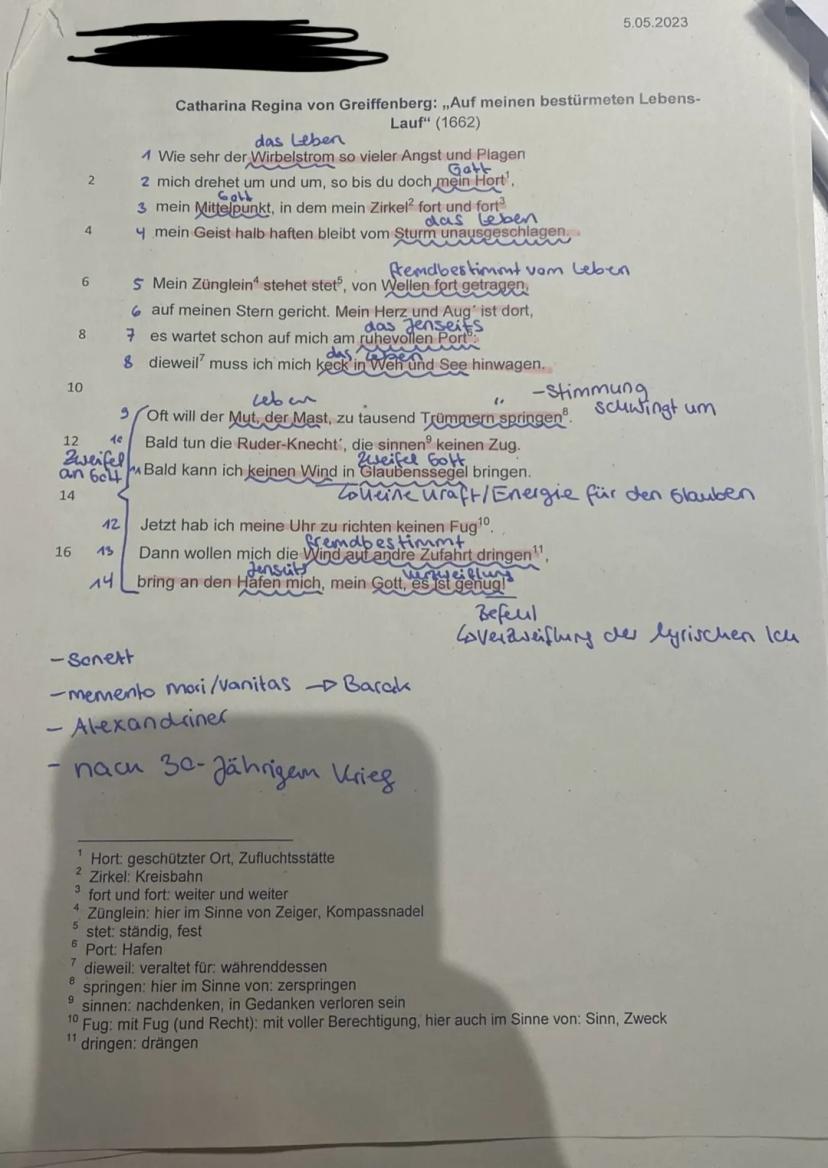 5.05.2023
Catharina Regina von Greiffenberg: „Auf meinen bestürmeten Lebens-
Lauf“ (1662)
das Leben
1 Wie sehr der Wirbelstrom so vieler Angst und Plagen
Gott
2 2 mich drehet um und um, so bis du doch mein Hort¹,
Gott
3 mein Mittelpunkt, in dem mein Zirkel² fort und fort³
das Leben
4 4 mein Geist halb haften bleibt vom Sturm unausgeschlagen.
fremdbestimmt vom Leben
6 5 Mein Zünglein⁴ stehet stet⁵, von Wellen fort getragen,
6 auf meinen Stern gericht. Mein Herz und Aug´ ist dort,
das Jenseits
8 7 es wartet schon auf mich am ruhevollen Port⁶:
das Leben
8 dieweil⁷ muss ich mich keck in Weh und See hinwagen.
10
-Stimmung
schwingt um
Leben "
9 Oft will der Mut, der Mast, zu tausend Trümmern springen⁸.
12 10 Bald tun die Ruder-Knecht´, die sinnen⁹ keinen Zug.
Zweifel an Gott
Zweifel Gott
11 Bald kann ich keinen Wind in Glaubenssegel bringen.
14
↳keine Kraft/Energie für den Glauben
12 Jetzt hab ich meine Uhr zu richten keinen Fug¹⁰.
fremdbestimmt
16 13 Dann wollen mich die Wind auf andre Zufahrt dringen¹¹,
Jenseits Verzweiflung
14 bring an den Hafen mich, mein Gott, es ist genug!
Befehl
↳Verzweiflung des lyrischen Ich
- Sonett
- memento mori/vanitas → Barock
- Alexandriner
- nach 30-Jährigem Krieg
¹ Hort: geschützter Ort, Zufluchtsstätte
² Zirkel: Kreisbahn
³ fort und fort: weiter und weiter
⁴ Zünglein: hier im Sinne von Zeiger, Kompassnadel
⁵ stet: ständig, fest
⁶ Port: Hafen
⁷ dieweil: veraltet für: währenddessen
⁸ springen: hier im Sinne von: zerspringen
⁹ sinnen: nachdenken, in Gedanken verloren sein
¹⁰ Fug: mit Fug (und Recht): mit voller Berechtigung, hier auch im Sinne von: Sinn, Zweck
¹¹ dringen: drängen